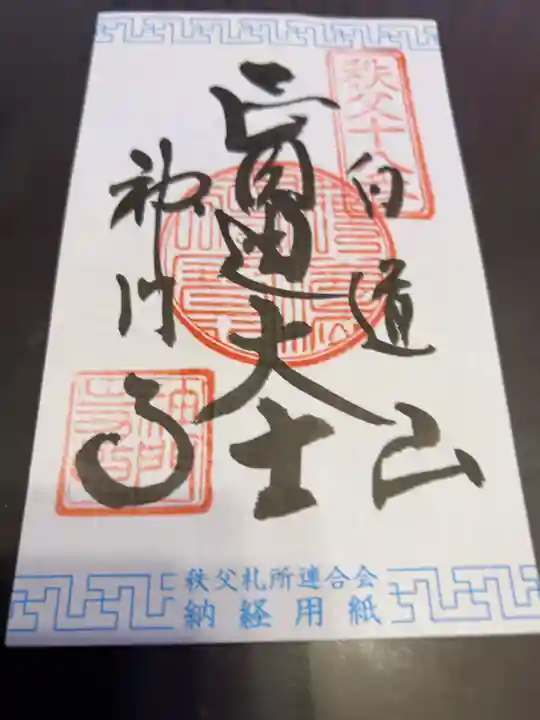 秩父十八番
白道山
正圓通大士
神門寺
秩父札所連合会
納経用紙